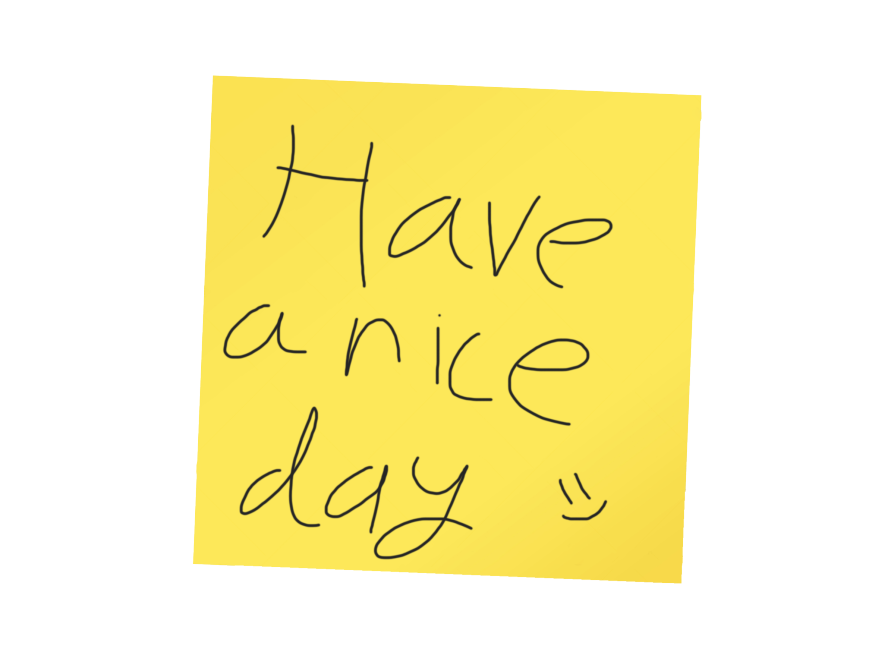 Have
a nice
day =)